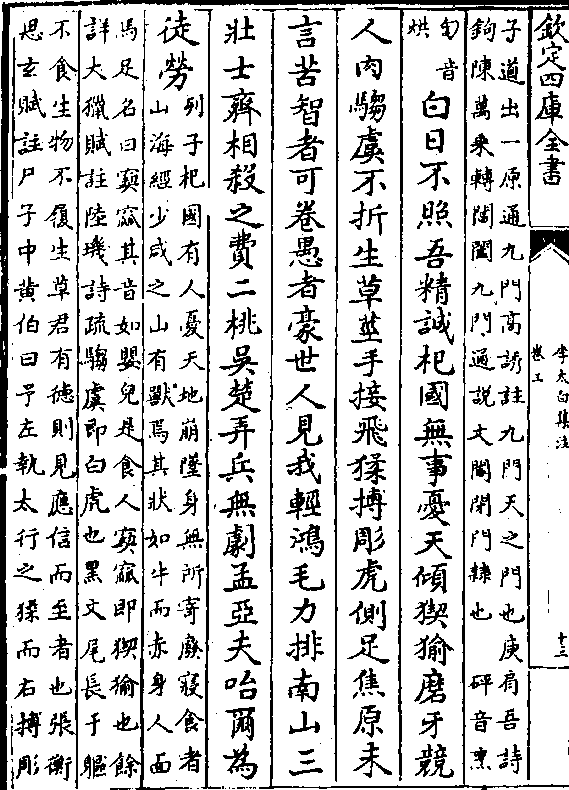 欽定四庫全書
李太白集注
卷三
十三
子道出一原通九門高誘註九門天之門也庾肩吾詩
鉤陳萬乗轉閶闔九門通説文閽閉門隸也 砰音烹
訇音
烘
白日不照吾精誠杞國無事憂天傾猰貐磨牙競
人肉騶虞不折生草莖手接飛猱搏彫虎側足焦原未
言苦智者可卷愚者豪世人見我輕鴻毛力排南山三
壯士齊相殺之費二桃吳楚弄兵無劇孟亞夫咍爾為
徒勞
列子杞國有人憂天地崩墜身無所寄廢寢食者
山海經少咸之山有獸焉其狀如牛而赤身人面
馬足名曰窫窳其音如嬰兒是食人窫窳即猰貐也餘
詳大獵賦註陸璣詩疏騶虞即白虎也黒文尾長于軀
不食生物不履生草君有徳則見應信而至者也張衡
思玄賦註尸子中黄伯曰予左執太行之猱而右搏彫